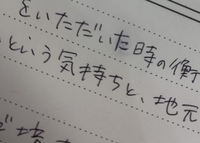 をいただいた時の衝
という気持ちと、地元